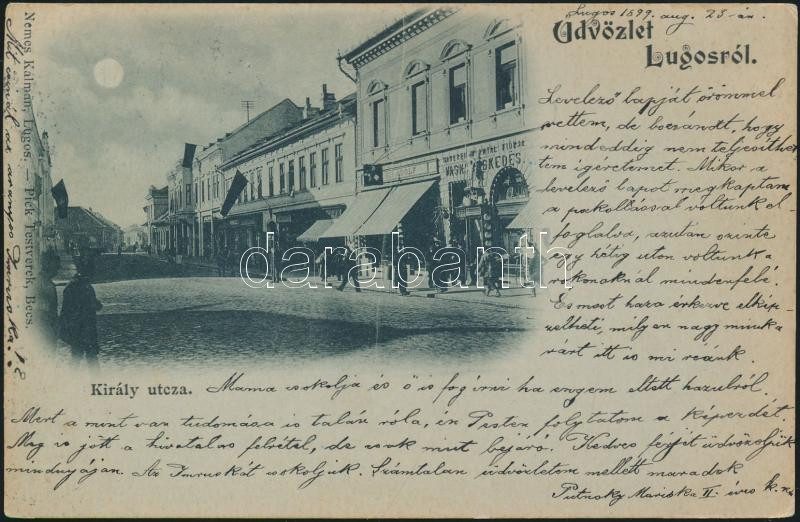 Lugos 1899. aug. 23-án.
Üdvözlet
Lugosról.
Levelező lapját örömmel
vettem, de bocsánatot, hogy
mindeddig nem teljesíthet
tem igéretemet. Mikor a
levelező lapot megkaptam
a pakolással voltunk el-
foglalva, azután szinte
egy hétig uton voltunk a
rokonoknál mindenfelé.
Es most haza érkezve elkép-
zelheti, milyen nagy munka
várt itt is mi reánk.
Király utcza.
Mama csókolja és ő is fog írni ha engem eltett hazulról.
Mert a mint van tudomása is talán róla, én Pesten folytatom a képezdét.
Meg is jött a hivatalos felvétel, de csak mint bejáró. Kedves férjét üdvözöljük
mindnyájan. Az Imruskát csókoljuk. Számtalan üdvözletem mellett maradok
Putnoky Mariska II. éves k.
Nemes Kálmán, Lugos. — Pick Testvérek, Bécs.
Mit csinál az aranyos Imruska?
darabanth